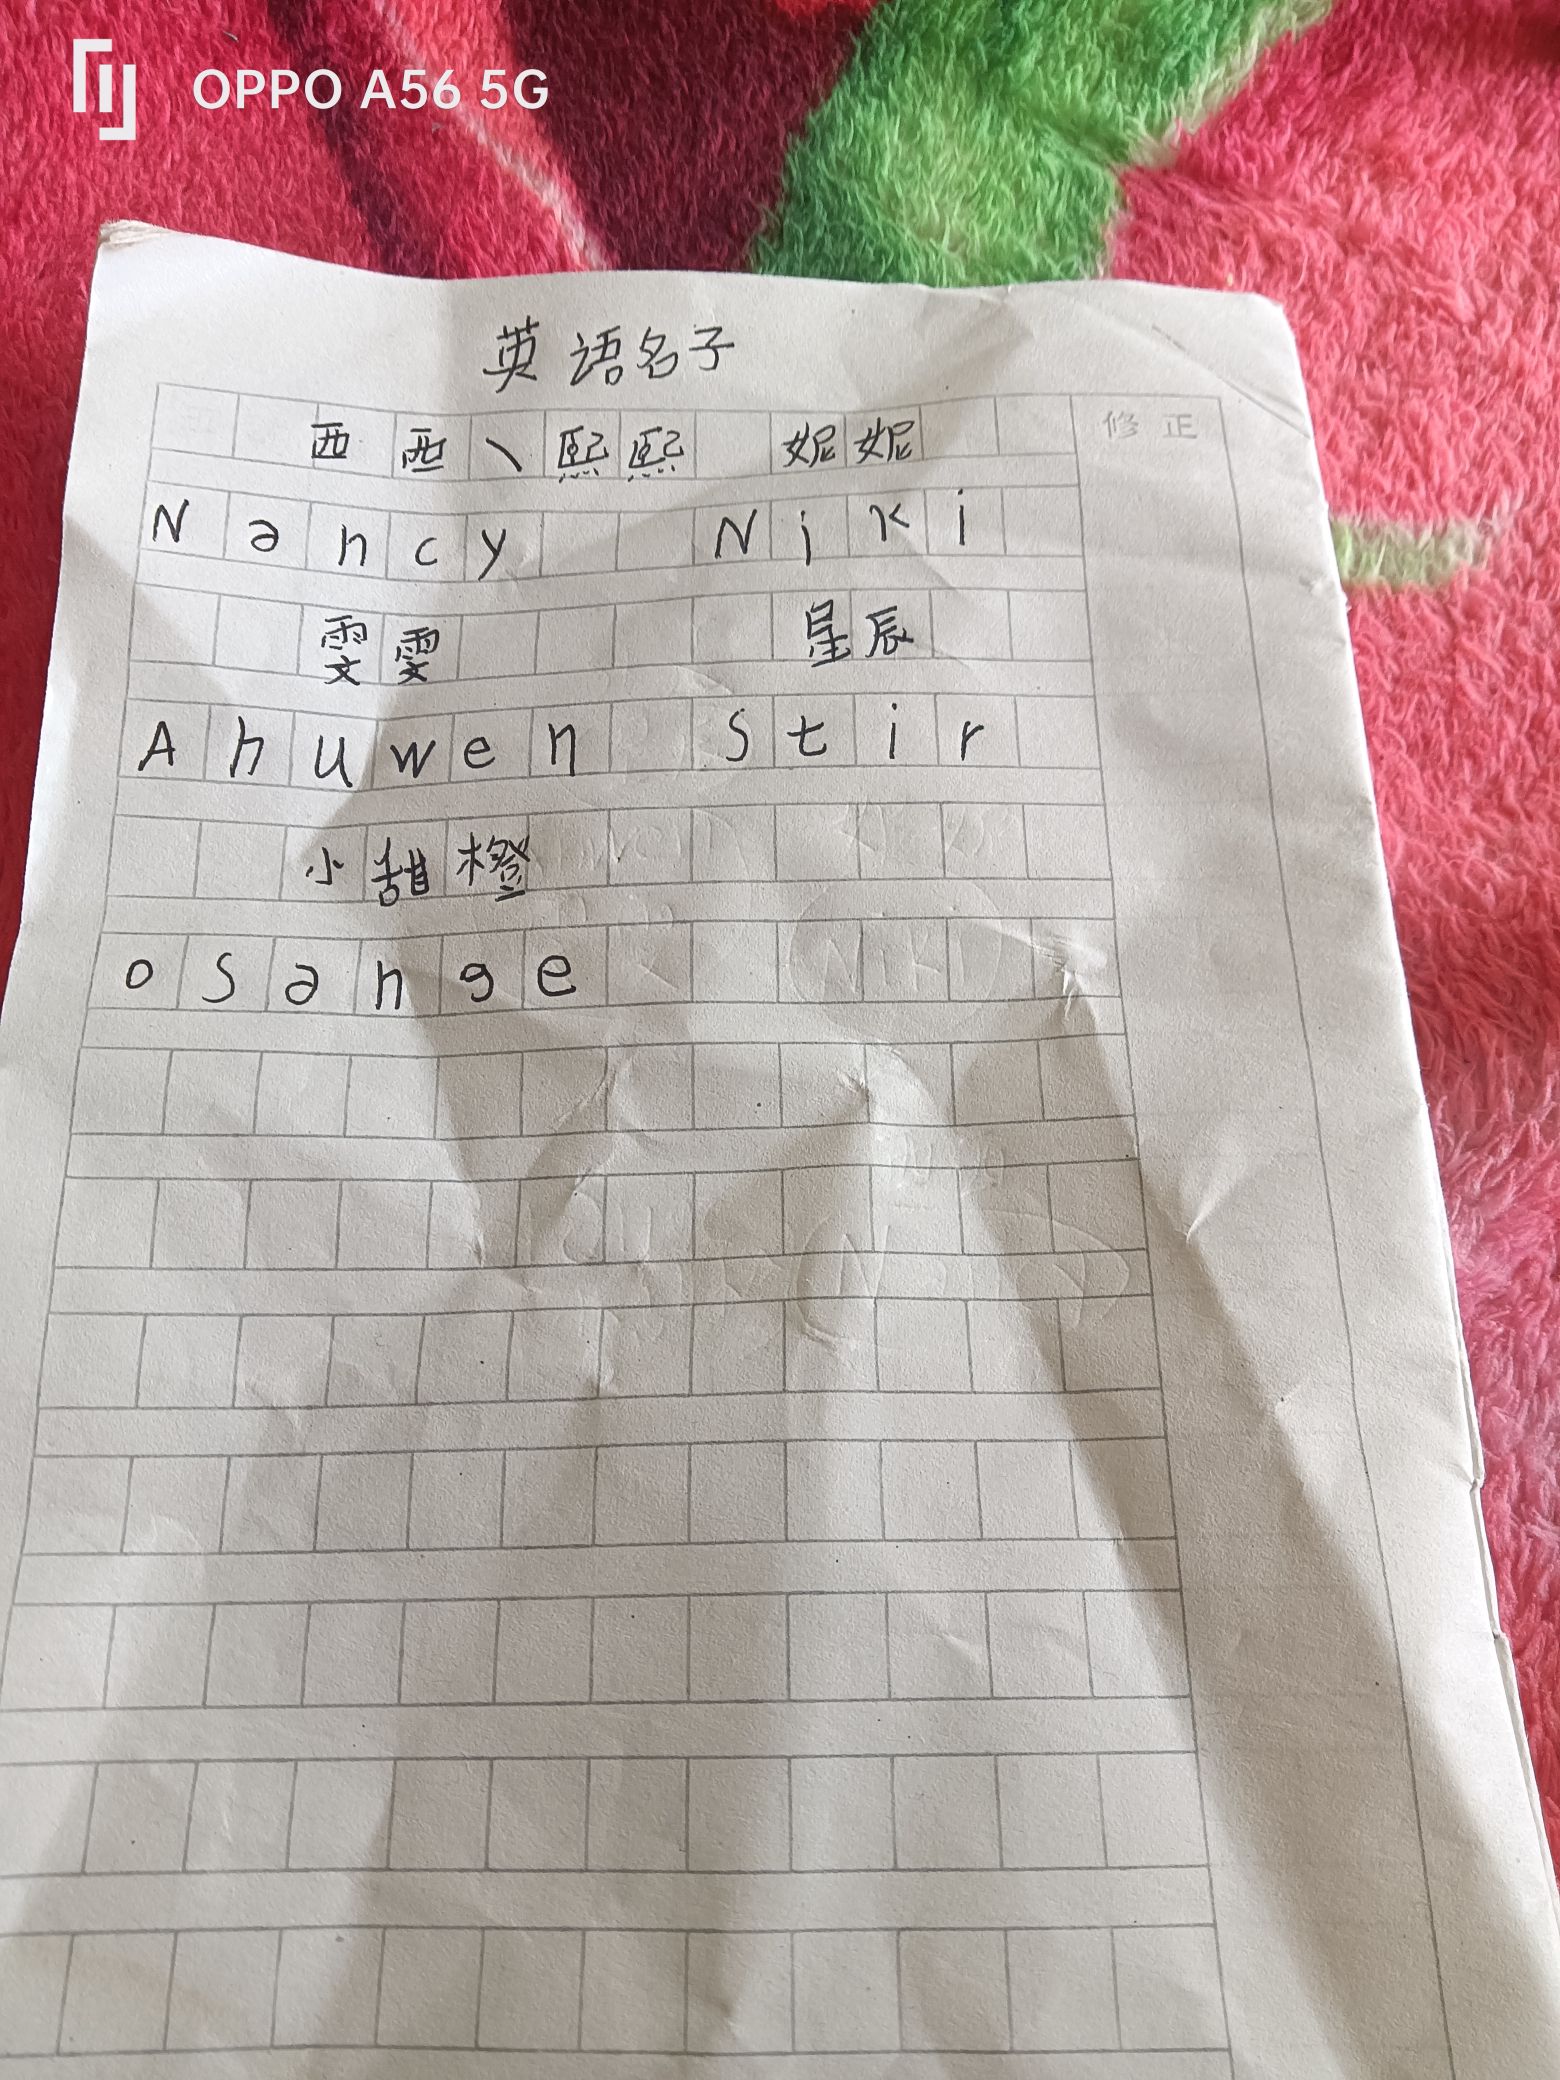 OPPO A56 5G
英语名子
西西、熙熙 妮妮
修正
Nancy Niki
雯雯 星辰
Ahuwen Stir
小甜橙
osange